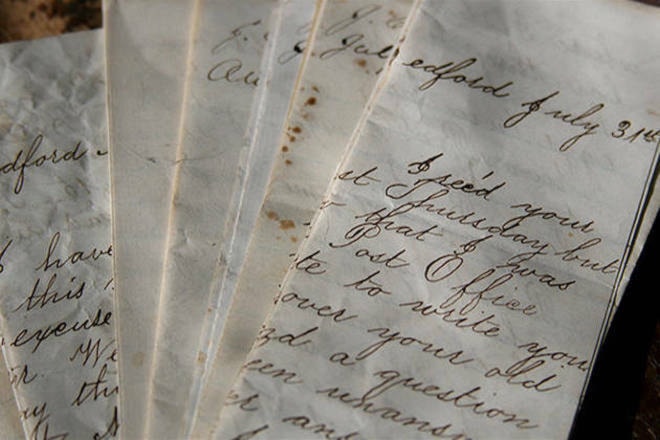 dford
I have
this
excuse
We
J.
Au
J.
Jul
edford July 31st
I rec'd your
st Thursday but
that I was
Post Office
te to write you
over your old
d a question
een unans